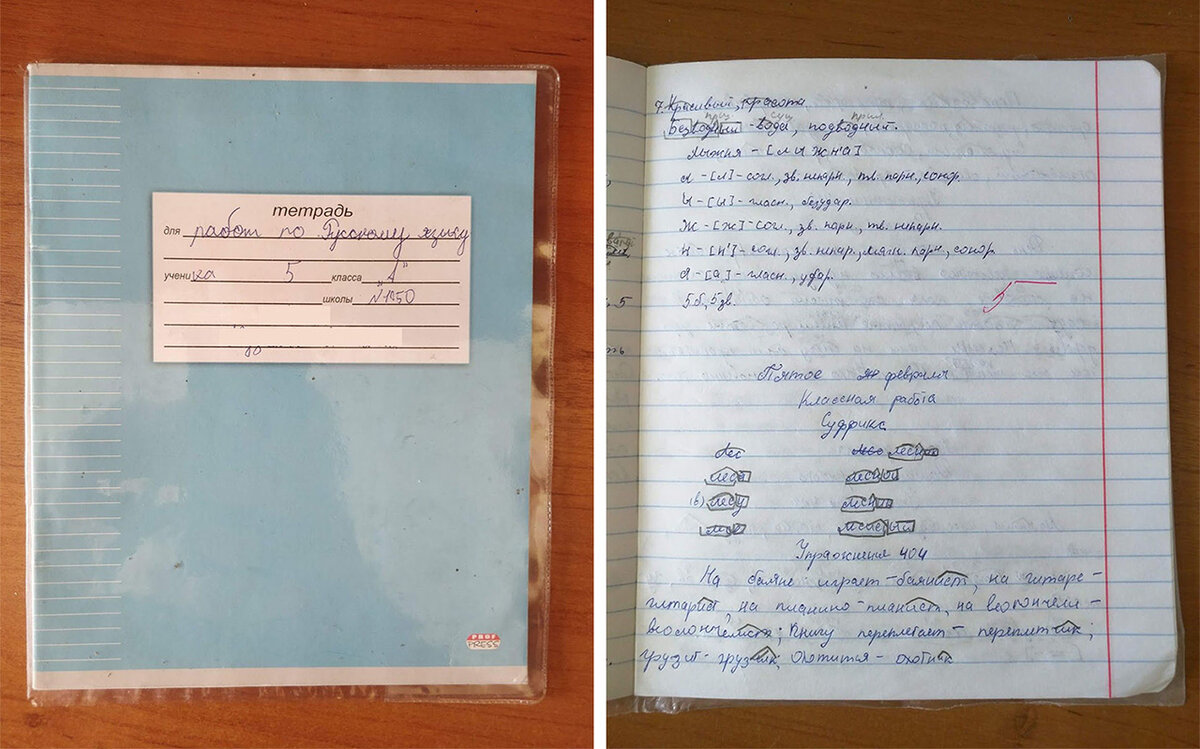 тетрадь
для работ по Русскому языку
учени ка 5 класса "А"
школы №1250
PROF PRESS
7. Красивый, красота
прил сущ прил.
Безводный - вода, подводный.
Лыжня - [лыжн'а]
л - [л] - согл., зв. непарн., тв. парн., сонор.
ы - [ы] - гласн., безудар.
Ж - [ж] - согл., зв. парн., тв. непарн.
н - [н'] - согл., зв. непар., мягк. парн., сонор
я - [а] - гласн., удар.
5 б., 5 зв.
5
Пятое февраля
Классная работа
Суффикс
лес лесник
леса лесной
(в) лесу
Упражнения 404
На баяне играет - баянист, на гитаре -
гитарист, на пианино - пианист, на веолончели -
веолончелиста; Книгу переплетает - переплетчик;
грузит - грузчик, Охотится - охотник